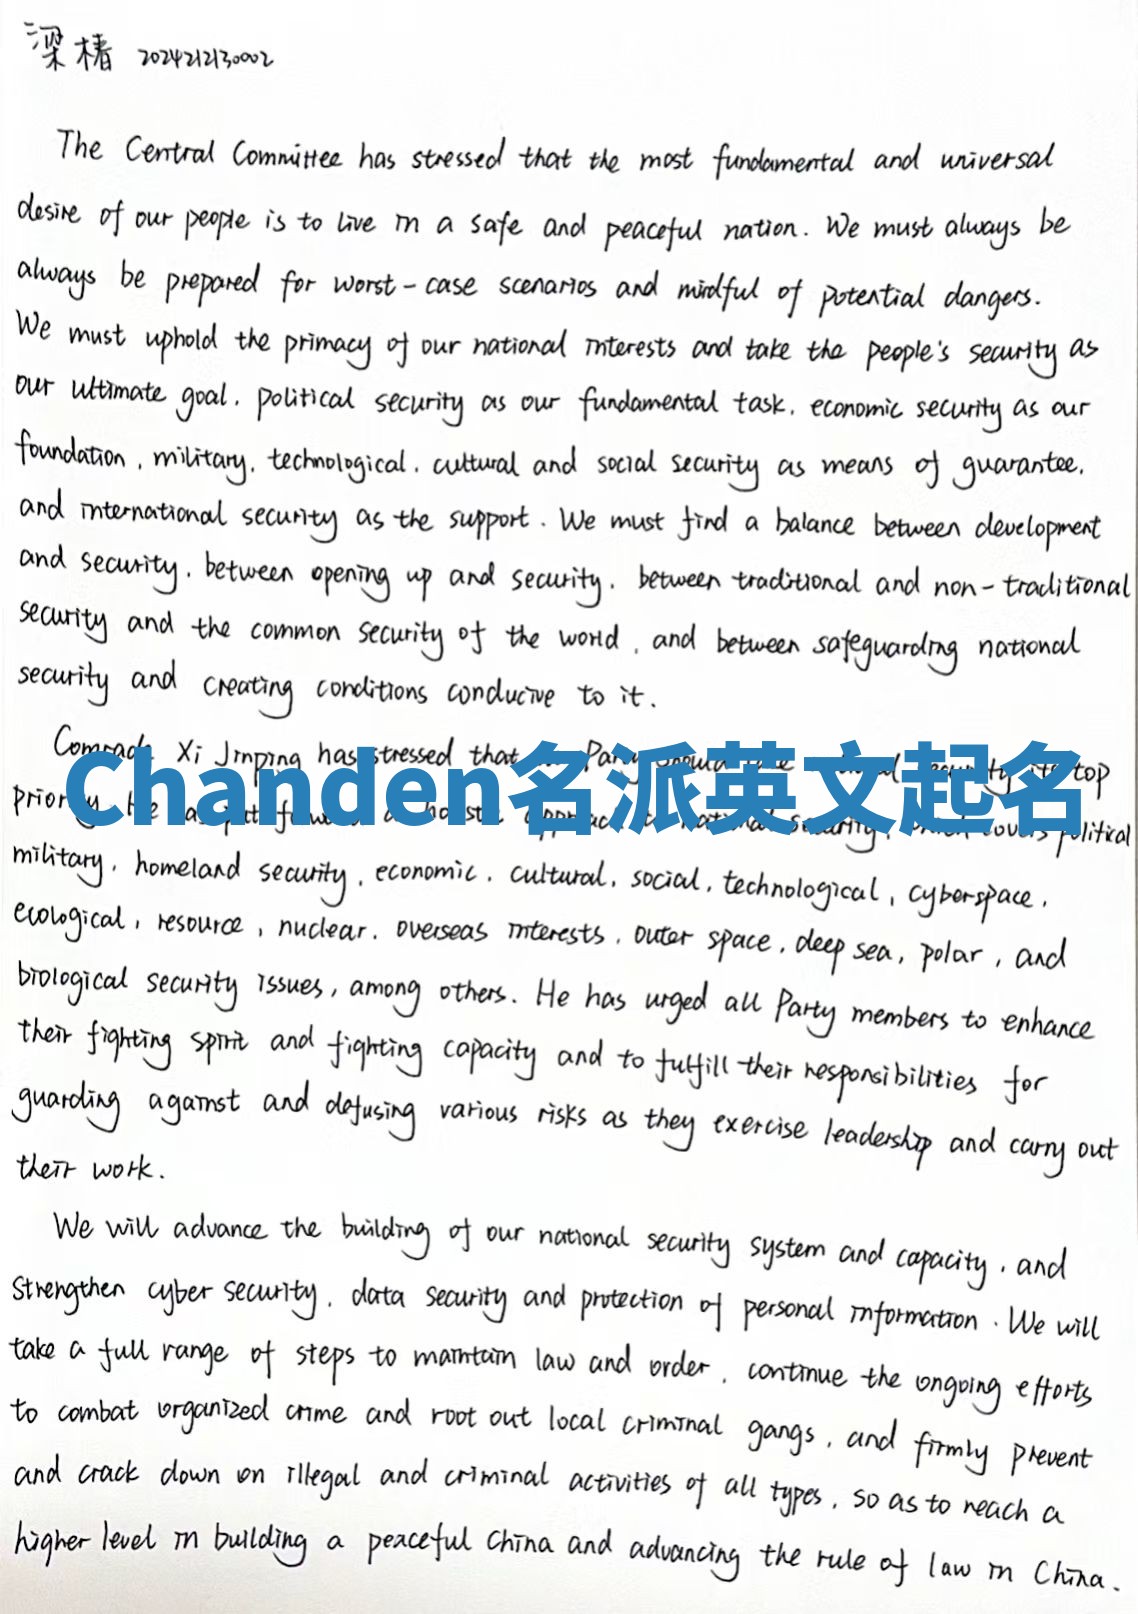 梁椿 2024212130002
The Central Committee has stressed that the most fundamental and universal
desire of our people is to live in a safe and peaceful nation. We must always be
always be prepared for worst-case scenarios and mindful of potential dangers.
We must uphold the primacy of our national interests and take the people's security as
our ultimate goal, political security as our fundamental task, economic security as our
foundation, military, technological, cultural and social security as means of guarantee,
and international security as the support. We must find a balance between development
and security, between opening up and security, between traditional and non-traditional
security and the common security of the world, and between safeguarding national
security and creating conditions conducive to it.
Comrade Xi Jinping has stressed that Party should security its top
Chanden名派英文起名
priority. He has put forward a holistic approach to national security, which covers political
military, homeland security, economic, cultural, social, technological, cyberspace,
ecological, resource, nuclear, overseas interests, outer space, deep sea, polar, and
biological security issues, among others. He has urged all Party members to enhance
their fighting spirit and fighting capacity and to fulfill their responsibilities for
guarding against and defusing various risks as they exercise leadership and carry out
their work.
We will advance the building of our national security system and capacity, and
strengthen cyber security, data security and protection of personal information. We will
take a full range of steps to maintain law and order, continue the ongoing efforts
to combat organized crime and root out local criminal gangs, and firmly prevent
and crack down on illegal and criminal activities of all types, so as to reach a
higher level in building a peaceful China and advancing the rule of law in China.